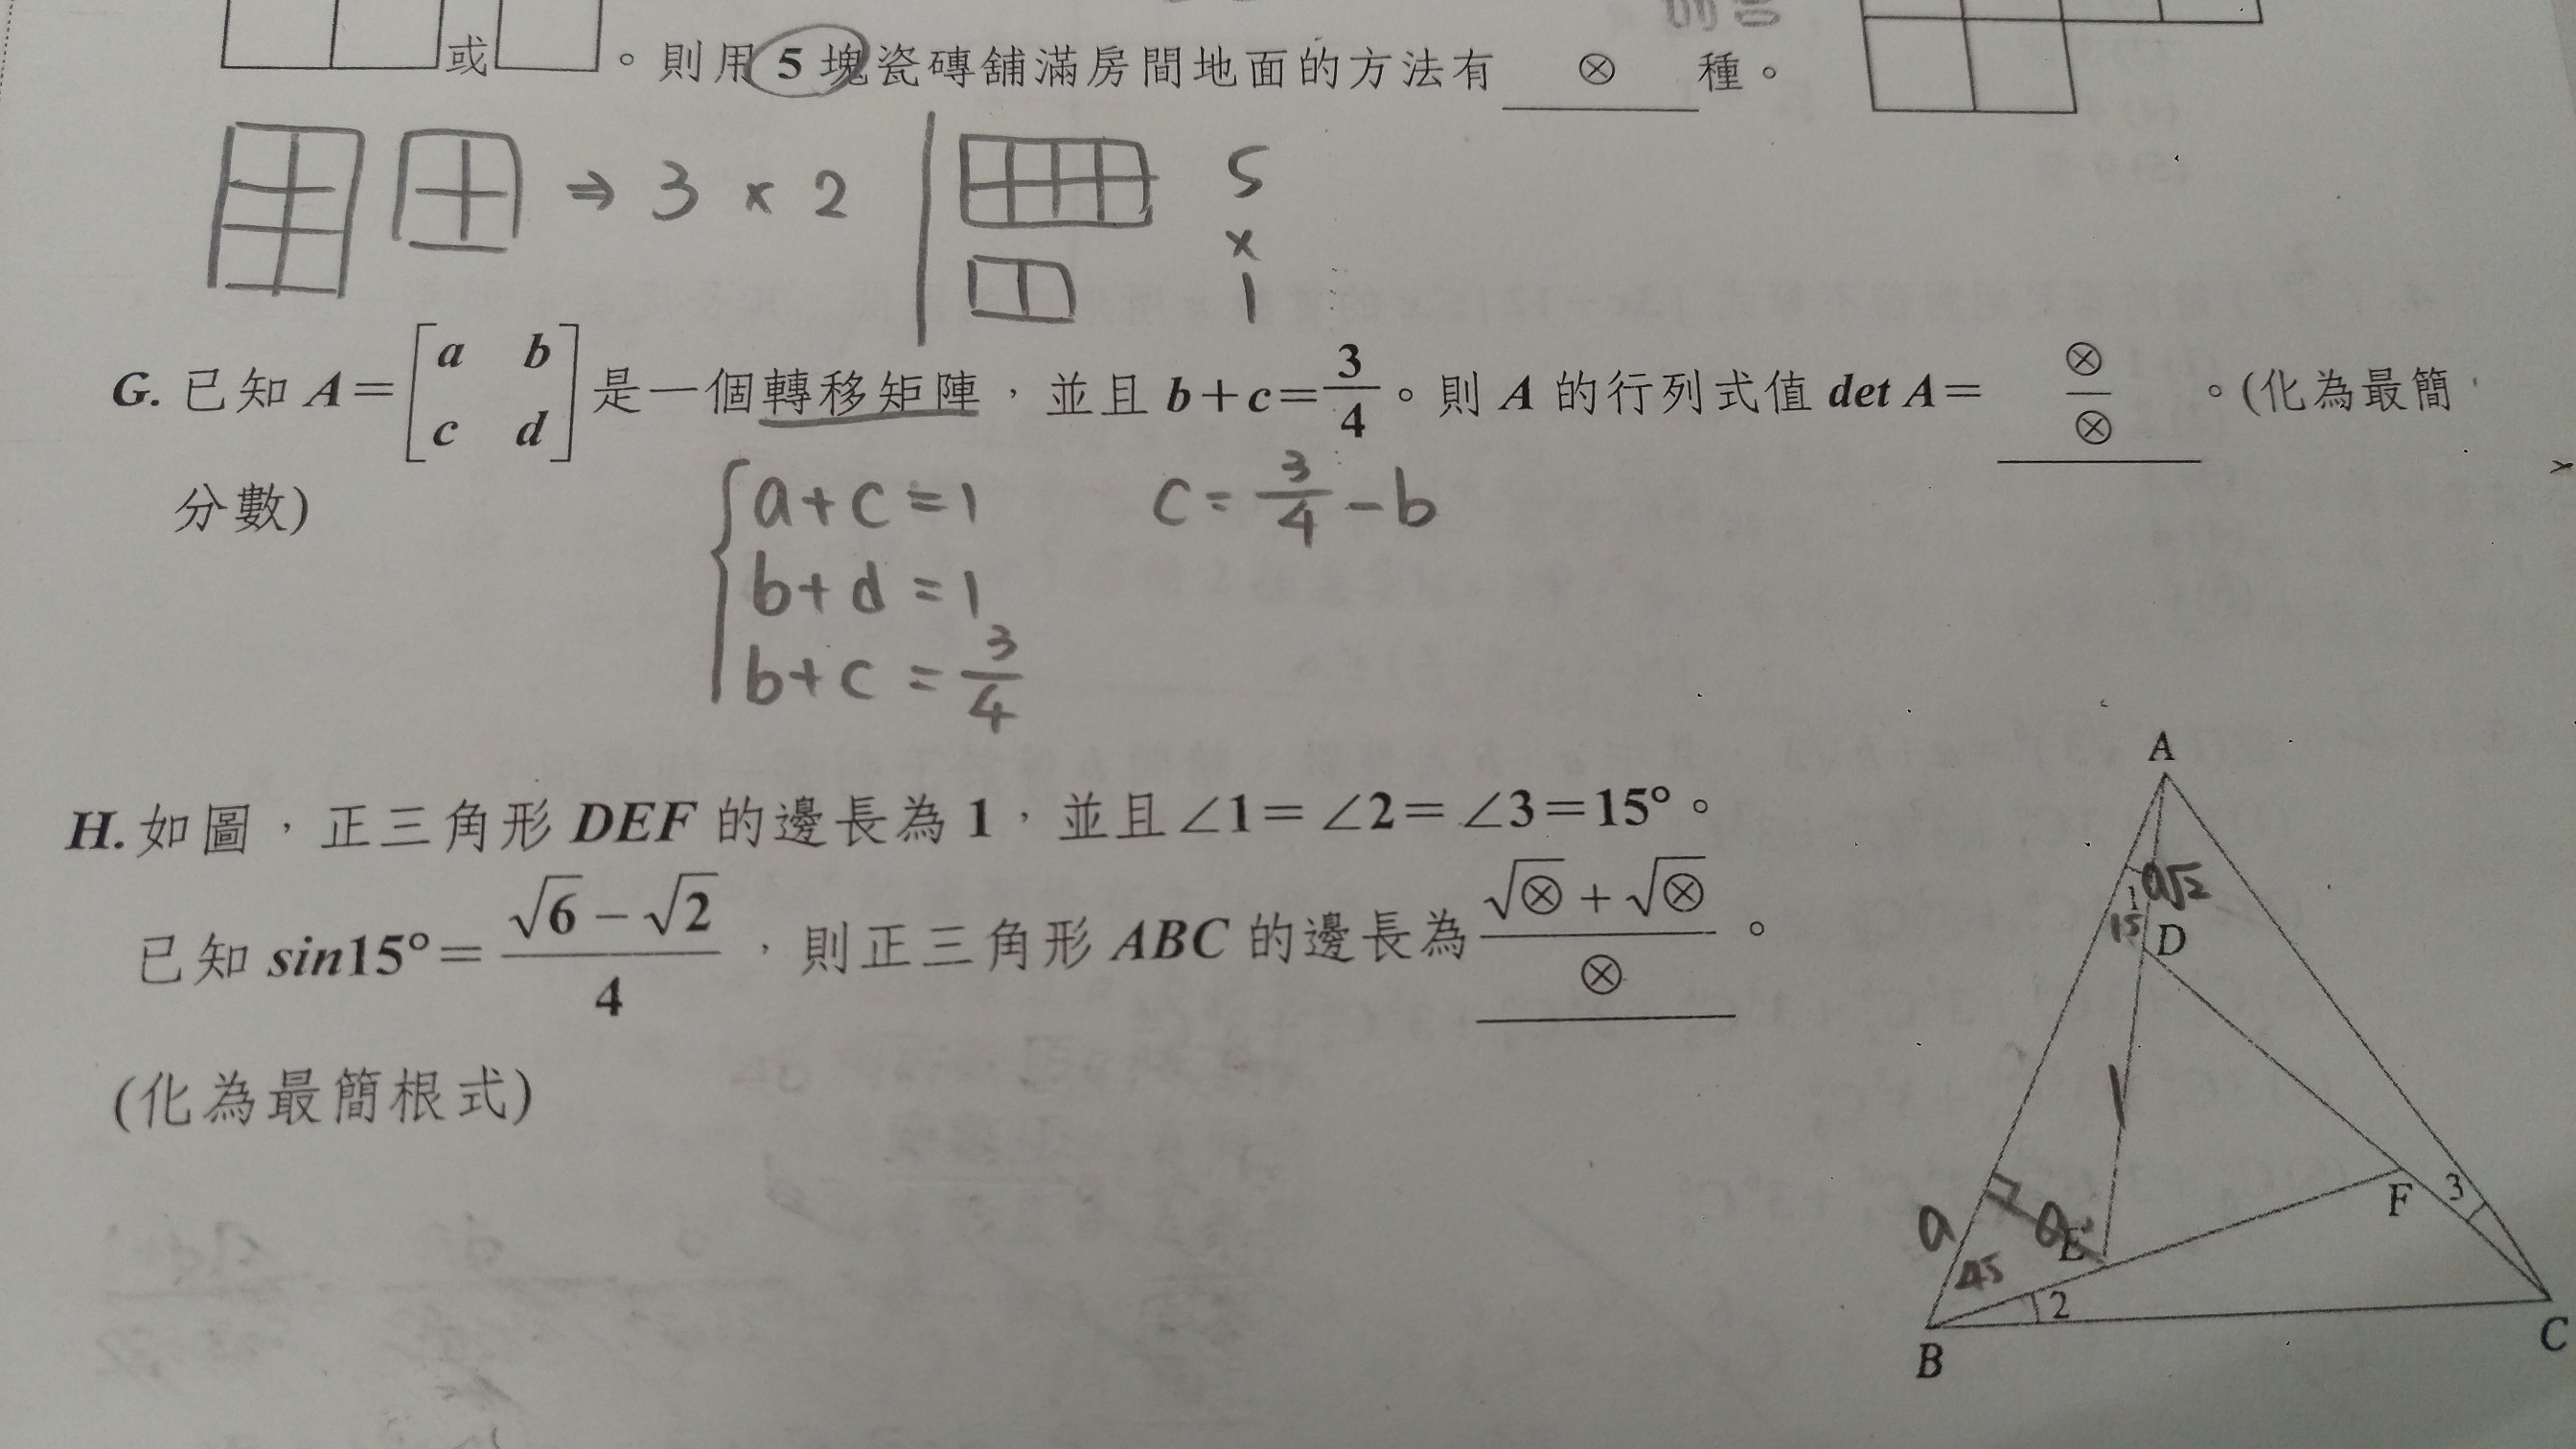 或 。則用 5 塊瓷磚舖滿房間地面的方法有 ⊗ 種。
⇒ 3 × 2
5
×
1
G. 已知 A=[a b c d] 是一個轉移矩陣,並且 b+c=3/4。則 A 的行列式值 det A= ⊗/⊗ 。(化為最簡
分數)
a+c=1
c=3/4-b
b+d=1
b+c=3/4
H. 如圖,正三角形 DEF 的邊長為 1,並且∠1=∠2=∠3=15°。
已知 sin15°=(√6-√2)/4,則正三角形 ABC 的邊長為 (√⊗+√⊗)/⊗ 。
(化為最簡根式)
A
a√2
1
15
D
1
F
3
a
a
E
45
2
B
C